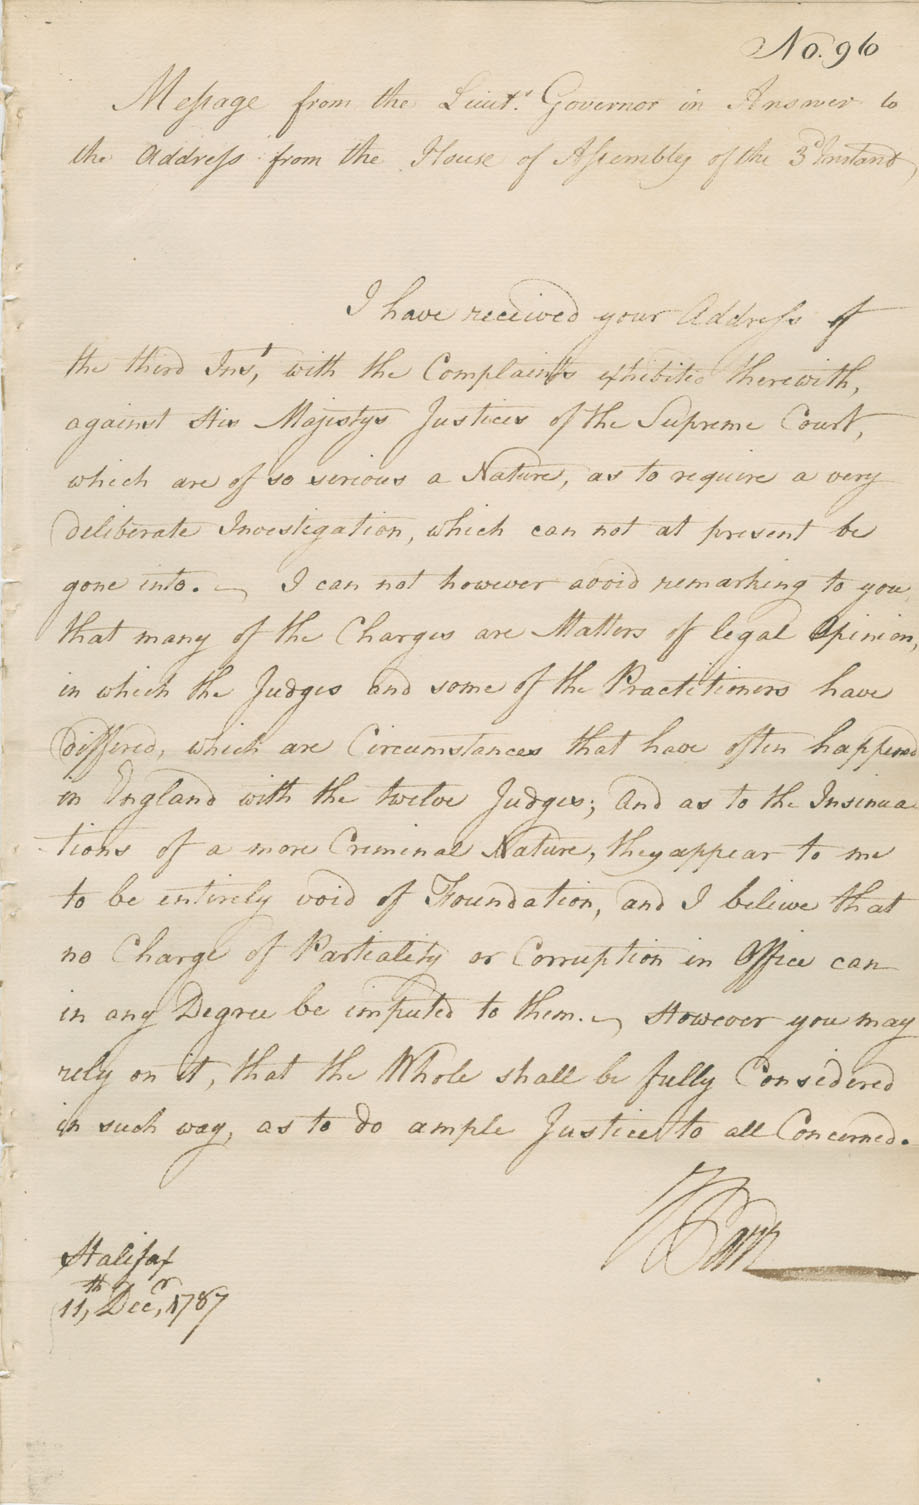 No. 96
Message from the Lieut.t Governor in Answer to
the Address from the House of Assembly of the 3d Instant,
I have received your Address of
the third Inst, with the Complaints exhibited therewith,
against His Majestys Justices of the Supreme Court,
which are of so serious a Nature, as to require a very
deliberate Investigation, which can not at present be
gone into. — I can not however avoid remarking to you,
that many of the Charges are Matters of legal Opinion,
in which the Judges and some of the Practitioners have
differed, which are Circumstances that have often happened
in England with the twelve Judges; and as to the Insinua
-tions of a more Criminal Nature, they appear to me
to be entirely void of Foundation, and I believe that
no Charge of Partiality or Corruption in Office can
in any Degree be imputed to them. — However you may
rely on it, that the Whole shall be fully Considered
in such way, as to do ample Justice to all Concerned.
Parr
Halifax
11th, Decr, 1787